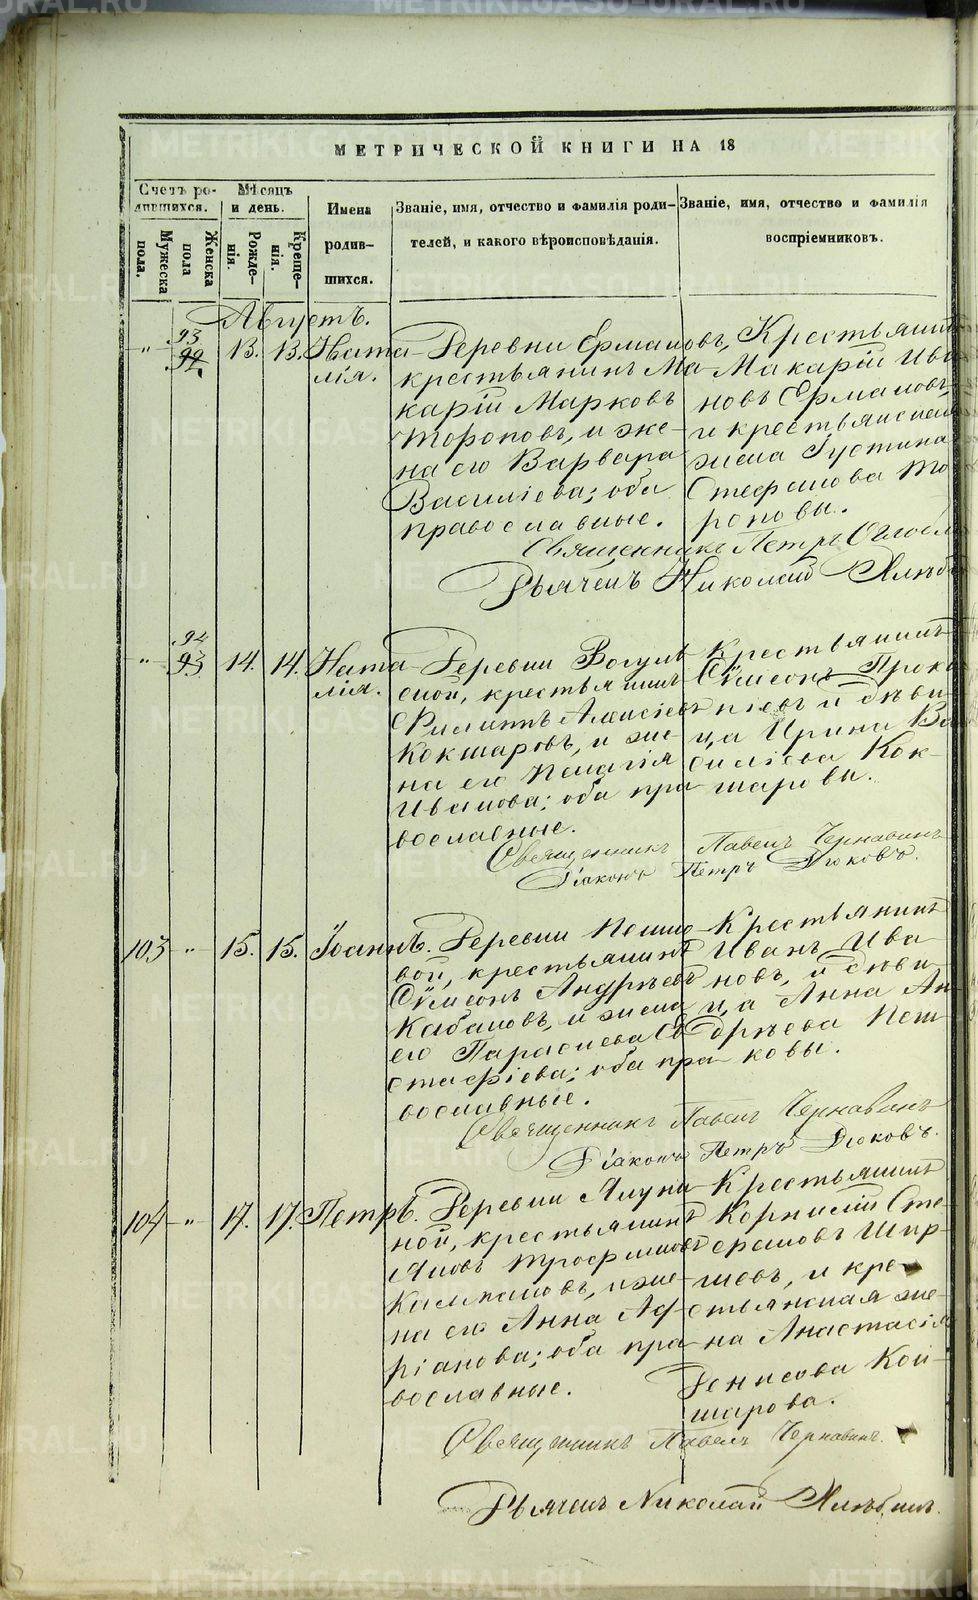 МЕТРИЧЕСКОЙ КНИГИ НА 18
Счетъ ро-
дившихся.
Мужеска
пола.
Женска
пола
Мѣсяцъ
и день.
Рожде-
нія.
Креще-
нія.
Имена
родив-
шихся.
Званіе, имя, отчество и фамилія роди-
телей, и какого вѣроисповѣданія.
Званіе, имя, отчество и фамилія
воспріемниковъ.
Августъ.
" 93 92. 13. 13. Ната-
лія.
Деревни Ермаковъ,
крестьянинъ Ма-
карій Марковъ
Тороповъ, и же-
на его Варвара
Василіева; оба
православные.
Крестьянинъ
Макарій Ива
новъ
и крестьянская
жена Густина
Стефанова То
ропова.
Священникъ Петръ
Дьячекъ Николай
" 94 93 14. 14. Ната-
лія.
Деревни Вогуль-
ской, крестьянинъ
Филиппъ Алексіевъ
Кокшаровъ, и же-
на его Пелагія
Иванова; оба пра-
вославные.
Крестьянинъ
Сѵмеонъ Проко
піевъ и дѣви-
ца Ирина Ва
силіева Кок-
шаровы.
Священникъ Павелъ Чернавинъ
Діаконъ Петръ Дюковъ.
103 " 15. 15. Іоаннъ.
Деревни
вой, крестьянинъ
Сѵмеонъ Андреевъ
Кабаковъ, и жена
его Параскева Ев-
стафіева; оба пра-
вославные.
Крестьянинъ
Иванъ Ива
новъ, и дѣви-
ца Анна Ан
дреева Пеш
ковы.
Священникъ Павелъ Чернавинъ
Діаконъ Петръ Дюковъ.
104 " 17. 17. Петръ.
Деревни
ной, крестьянинъ
Яковъ Трофимовъ
и же-
на его Анна Ад-
ріанова; оба пра-
вославные.
Крестьянинъ
Корнилій Сте-
фановъ
и кре-
стьянская же-
на Анастасія
Денисова Кок-
шарова.
Священникъ Павелъ Чернавинъ.
Дьячекъ Николай